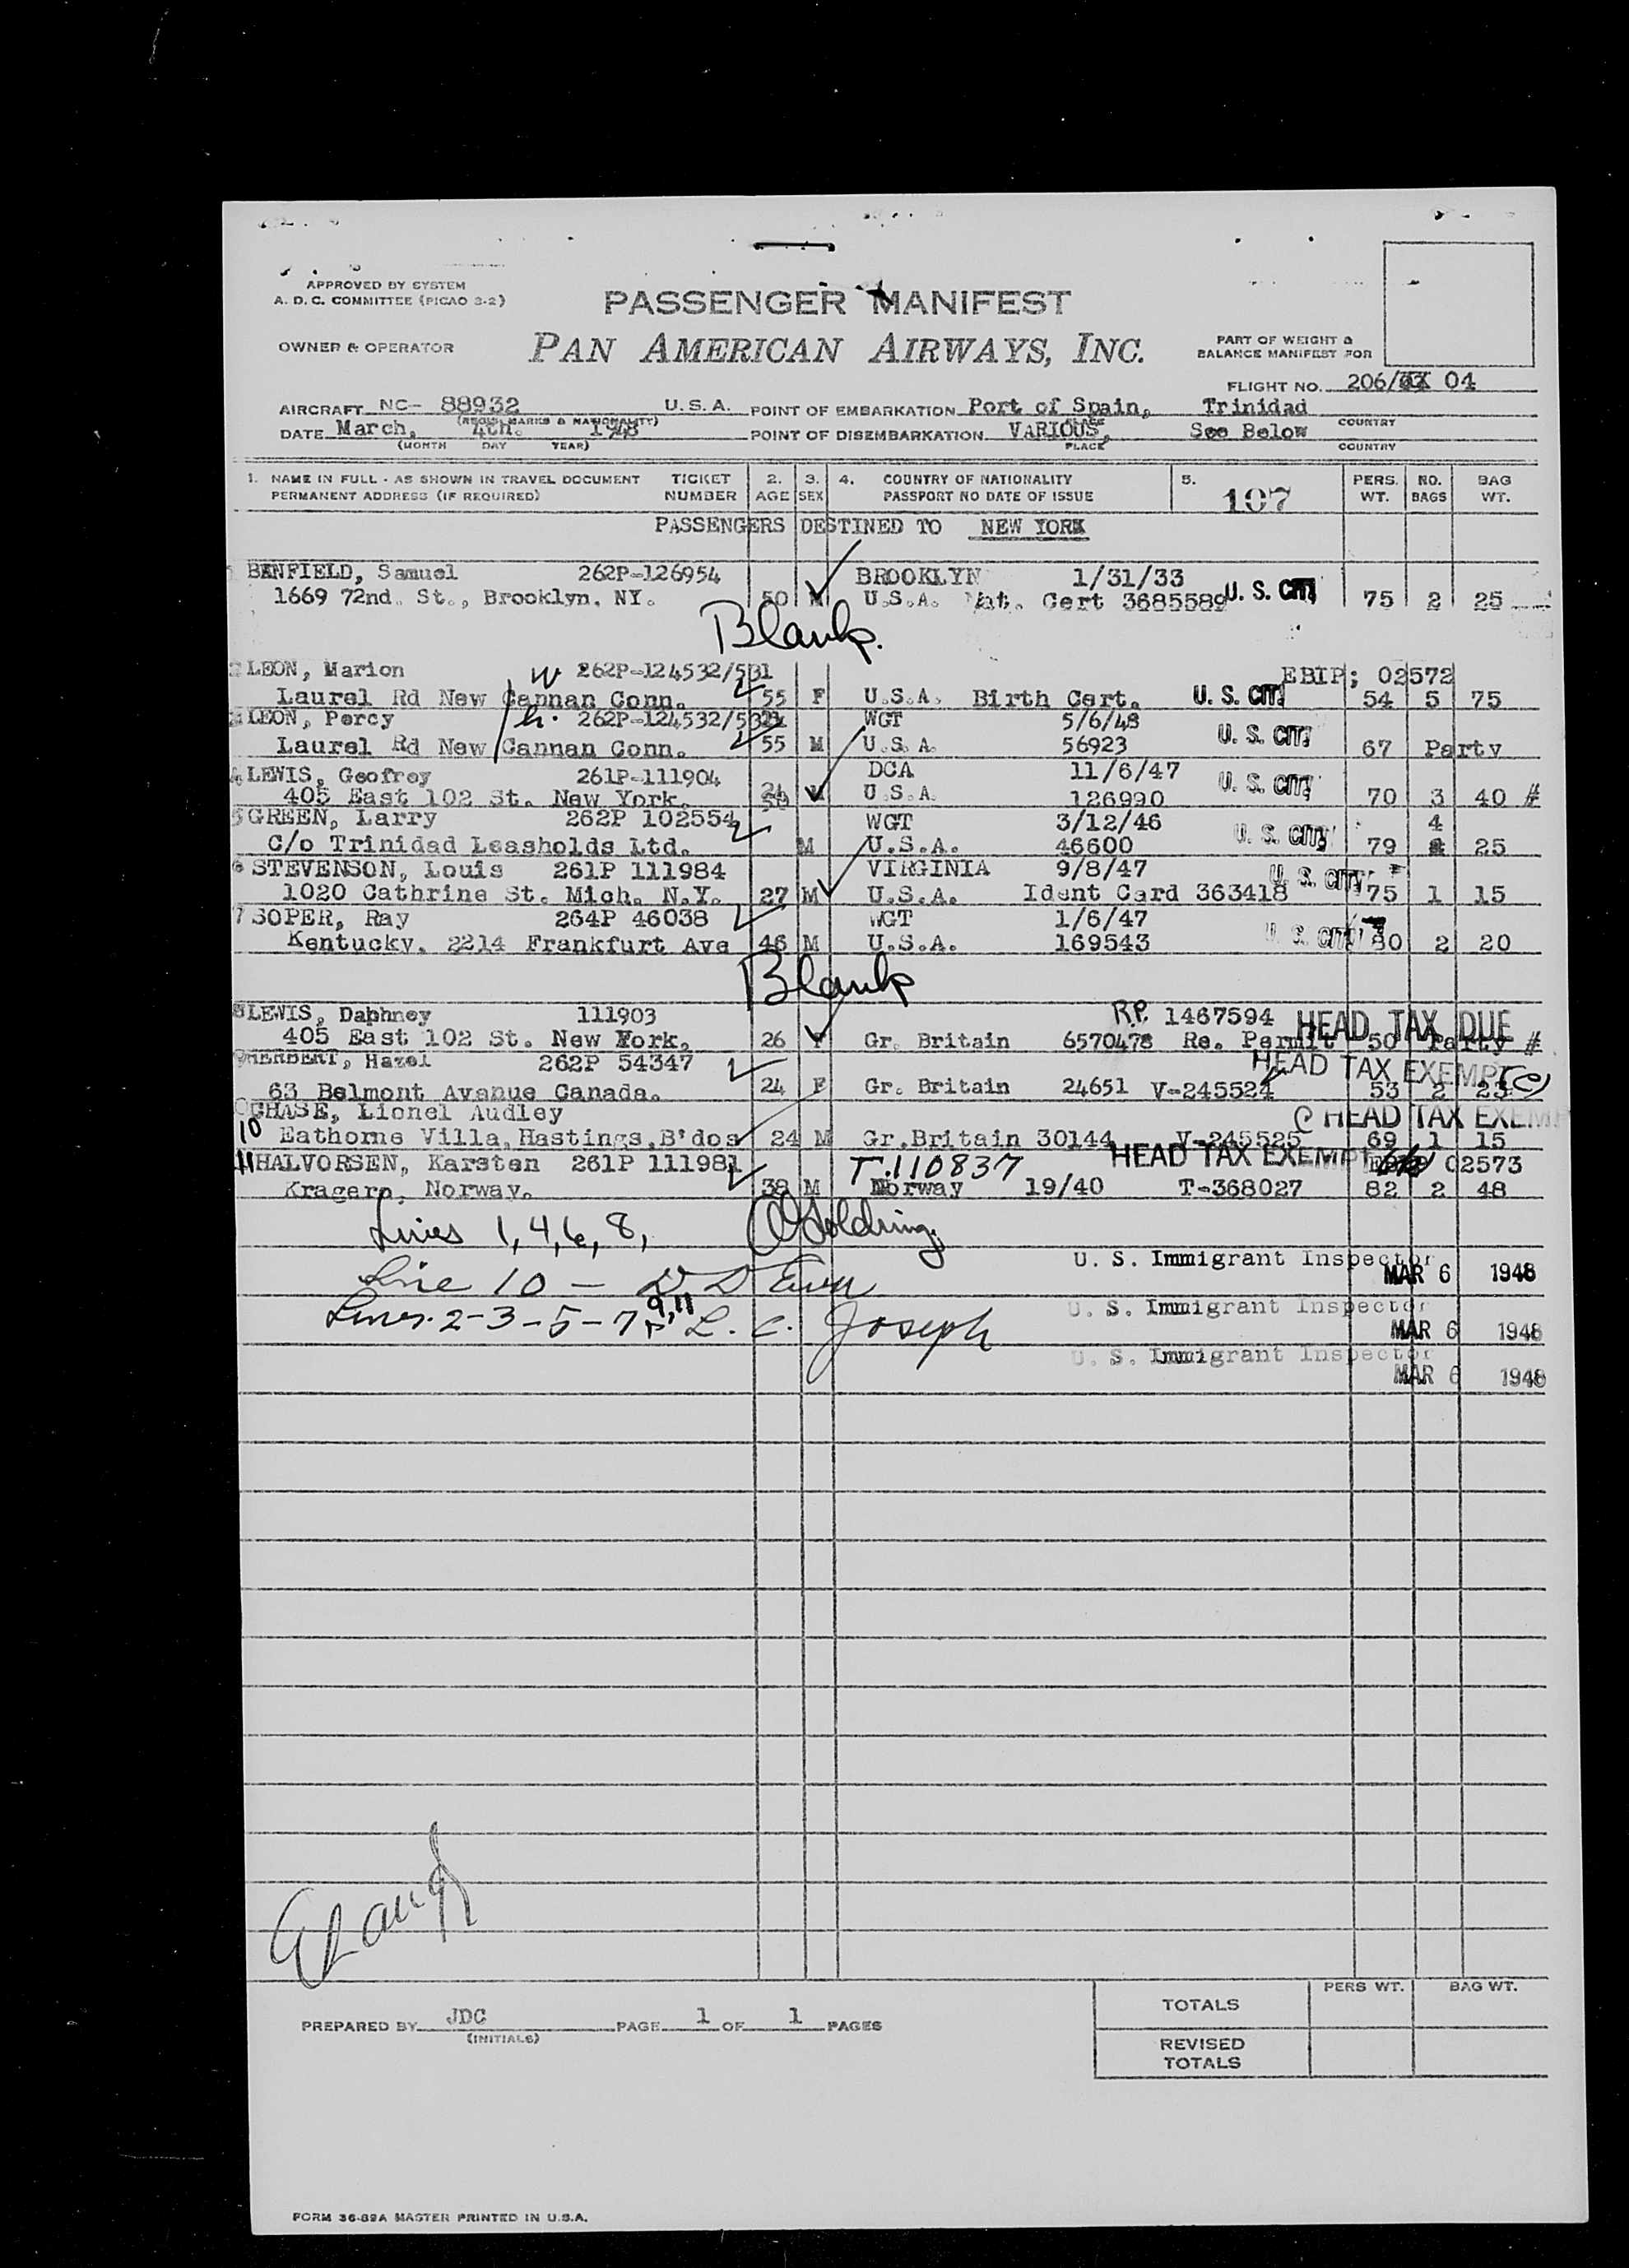 APPROVED BY SYSTEM
A. D. C. COMMITTEE (PICAO 3-2)
PASSENGER MANIFEST
OWNER & OPERATOR
PAN AMERICAN AIRWAYS, INC.
PART OF WEIGHT &
BALANCE MANIFEST FOR
FLIGHT NO. 206/ 04
AIRCRAFT NC- 88932 U.S.A. POINT OF EMBARKATION Port of Spain, Trinidad
(REG. MARKS & NATIONALITY) PLACE COUNTRY
DATE March, 4th. 1948 POINT OF DISEMBARKATION VARIOUS, See Below
(MONTH DAY YEAR) PLACE COUNTRY
1. NAME IN FULL - AS SHOWN IN TRAVEL DOCUMENT TICKET 2. 3. 4. COUNTRY OF NATIONALITY 5. PERS. NO. BAG
PERMANENT ADDRESS (IF REQUIRED) NUMBER AGE SEX PASSPORT NO DATE OF ISSUE 107 WT. BAGS WT.
PASSENGERS DESTINED TO NEW YORK
BANFIELD, Samuel 262P-126954 BROOKLYN 1/31/33
1669 72nd. St., Brooklyn, NY. 50 M U.S.A. Nat. Cert 3685589 U. S. CIT 75 2 25
Blank.
2 LEON, Marion W 262P-124532/531 EBIP; 02572
Laurel Rd New Cannan Conn. 55 F U.S.A. Birth Cert. U. S. CIT 54 5 75
3 LEON, Percy h. 262P-124532/531 WGT 5/6/48
Laurel Rd New Cannan Conn. 55 M U.S.A. 56923 U. S. CIT 67 Party
4 LEWIS, Geofrey 261P-111904 DCA 11/6/47
405 East 102 St. New York. M U.S.A. 126990 U. S. CIT 70 3 40 #
5 GREEN, Larry 262P 102554 WGT 3/12/46 4
C/o Trinidad Leasholds Ltd. M U.S.A. 46600 U. S. CIT 79 25
6 STEVENSON, Louis 261P 111984 VIRGINIA 9/8/47
1020 Cathrine St. Mich. N.Y. 27 M U.S.A. Ident Card 363418 U. S. CIT 75 1 15
7 SOPER, Ray 264P 46038 WGT 1/6/47
Kentucky. 2214 Frankfurt Ave 46 M U.S.A. 169543 U. S. CIT 80 2 20
Blank
8 LEWIS, Daphney 111903 R.P. 1467594 HEAD TAX DUE
405 East 102 St. New York. 26 F Gr. Britain 6570478 Re. Permit 50 Party #
9 HERBERT, Hazel 262P 54347 HEAD TAX EXEMPT (e)
63 Belmont Avenue Canada. 24 F Gr. Britain 24651 V-245524 53 2 23
CHASE, Lionel Audley HEAD TAX EXEM
10 Eathorne Villa, Hastings, B'dos 24 M Gr.Britain 30144 V-245525 69 1 15
11 HALVORSEN, Karsten 261P 111981 T.110837 HEAD TAX EXEMPT 02573
Kragero, Norway. 38 M Norway 19/40 T-368027 82 2 48
Lines 1, 4, 6, 8, Goldring
U. S. Immigrant Inspector
MAR 6 1948
Line 10 —
U. S. Immigrant Inspector
MAR 6 1948
Lines. 2-3-5-7 9,11 L. C. Joseph
U. S. Immigrant Inspector
MAR 6 1948
PERS WT. BAG WT.
TOTALS
PREPARED BY JDC PAGE 1 OF 1 PAGES
(INITIALS)
REVISED
TOTALS
FORM 36-89A MASTER PRINTED IN U.S.A.